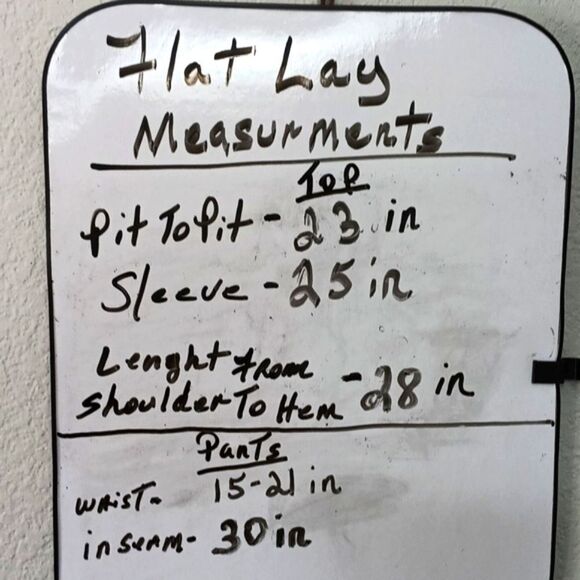 Flat Lay
Measurments
Top
Pit To Pit - 23 in
Sleeve - 25 in
Lenght From
Shoulder To Hem - 28 in
Pants
Waist- 15-21 in
inseam- 30 in